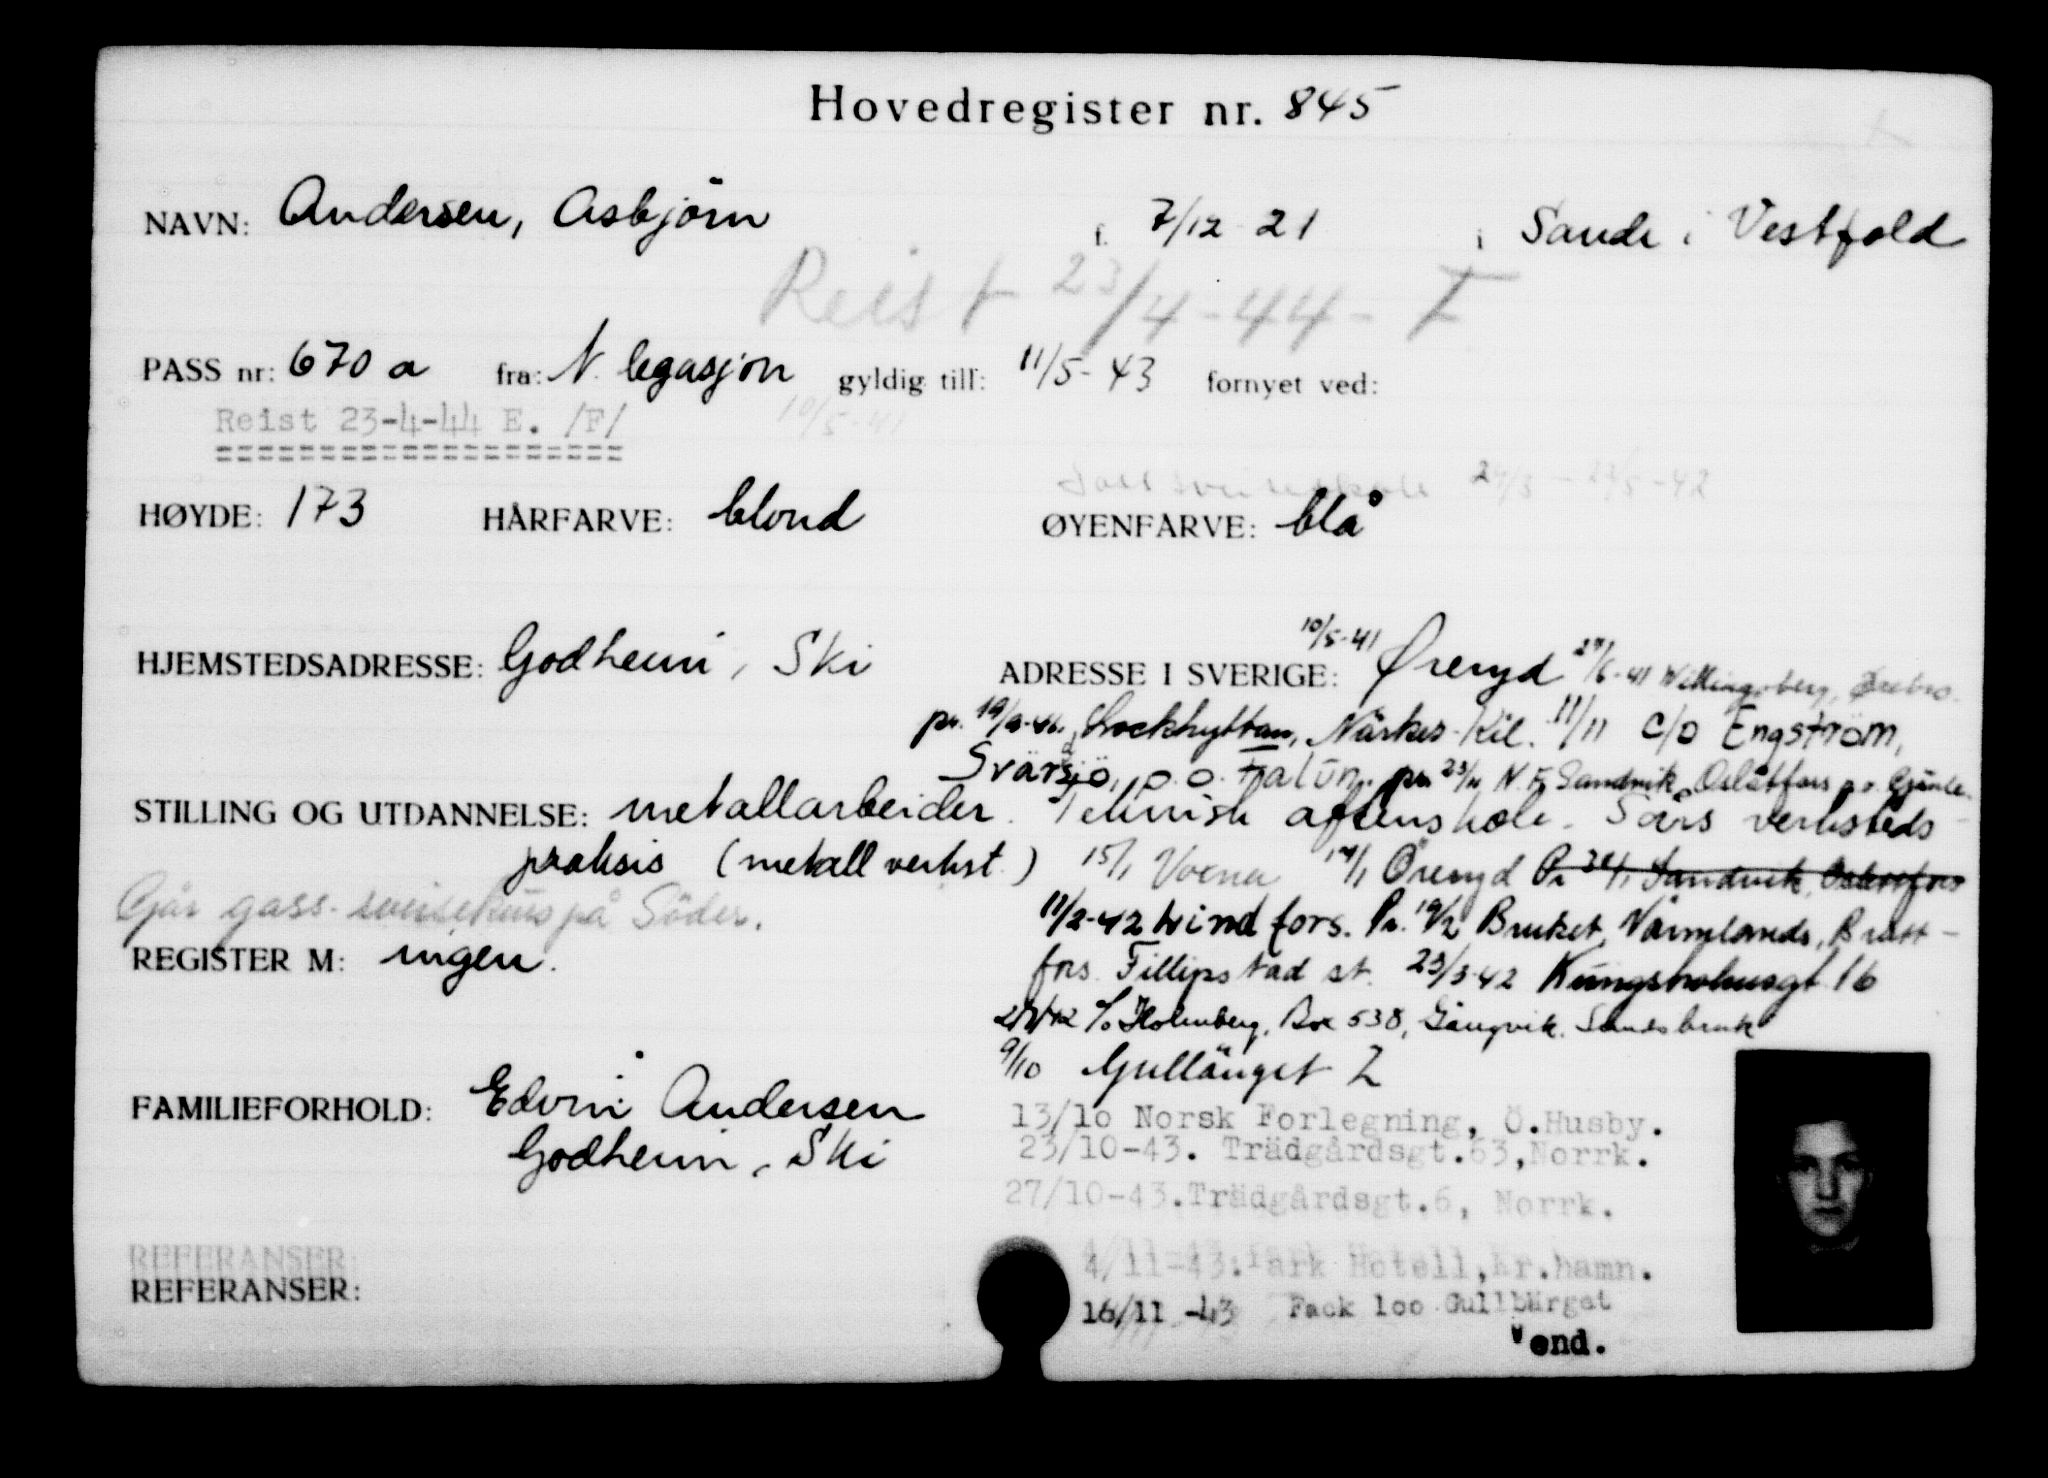 Hovedregister nr. 845
NAVN: Andersen, Asbjörn f. 7/12 21 i Sande i Vestfold
Reist 23/4-44-F
PASS nr: 670 a fra: N. legasjon gyldig till: 11/5-43 fornyet ved:
Reist 23-4-44 E. /F/ 10/5-41
24/3 - 23/5-42
HØYDE: 173 HÅRFARVE: blond ØYENFARVE: blå
10/5-41
HJEMSTEDSADRESSE: Godheim, Ski ADRESSE I SVERIGE: Øreryd /6-41 Örebro.
pr. Lockhyttan, Närkes-Kil. 11/11 c/o Engström,
Svärdsjö, p.o. Falun. pr. 23/11 N. F. Sandvik, p.o.
STILLING OG UTDANNELSE: metallarbeider. Teknisk aftenskole. 5 års verksteds-
praksis (metall verkst.) 15/1 Voxna 17/1 Öreryd Pr Sandvik,
Går gass-sveisekurs på Söder. 11/2-42 Lindfors. Pr. 19/2 Bruket, Värmlands, Bratt-
REGISTER M: ingen. fors. Fillipstad st. 23/3-42 Kungsholmsgt 16
c/o Holmberg, Box 538, Gångvik. Sundsbruk
9/10 Gullänget Z
FAMILIEFORHOLD: Edvin Andersen
13/10 Norsk Forlegning, Ö.Husby.
Godheim, Ski 23/10-43. Trädgårdsgt.63,Norrk.
27/10-43.Trädgårdsgt.6, Norrk.
REFERANSER: 4/11-43.Park Hotell,Kr.hamn.
REFERANSER: 16/11 -43 Fack 100 Gullbärget
Vend.